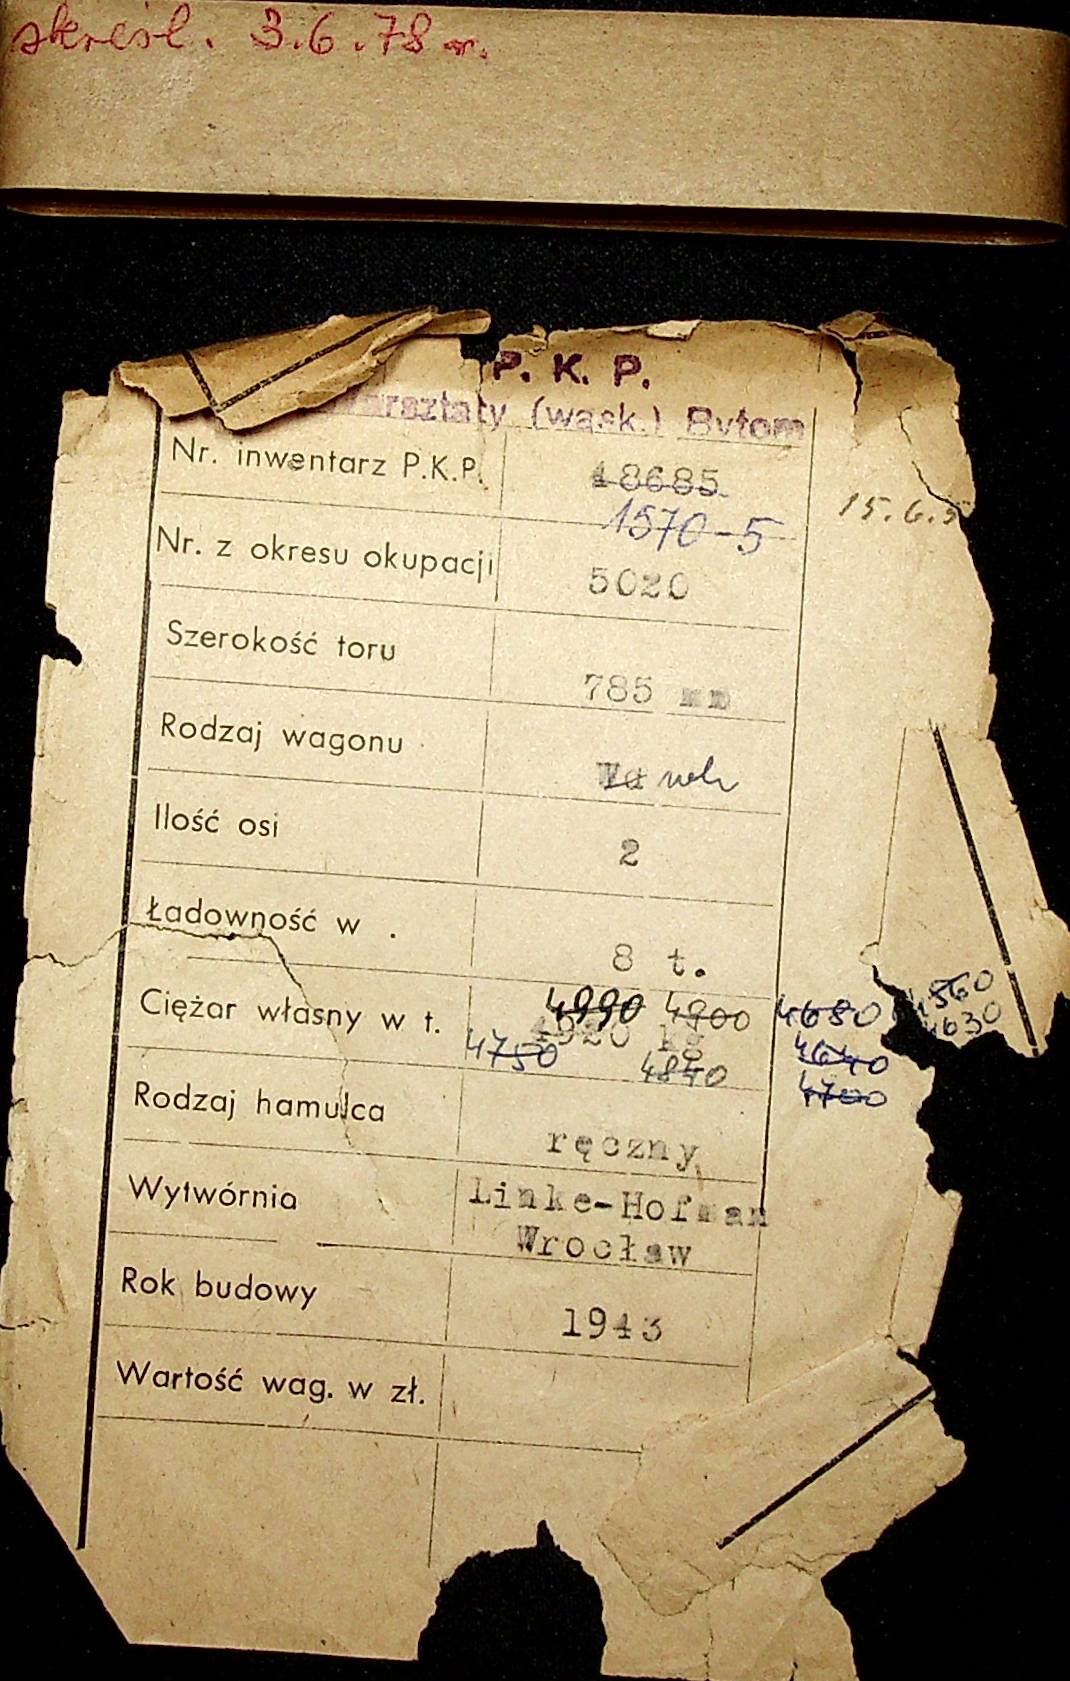 skreśl. 3.6.78 r.
P. K. P.
Warsztaty (wąsk.) Bytom
Nr. inwentarz P.K.P. 18685
1570-5 15.6.5
Nr. z okresu okupacji 5020
Szerokość toru 785 mm
Rodzaj wagonu
Ilość osi 2
Ładowność w . 8 t.
Ciężar własny w t. 4990 4900 4680 4560
4920 kg 4630
4750 4840 4640
4700
Rodzaj hamulca ręczny
Wytwórnia Linke-Hofman
Wrocław
Rok budowy 1943
Wartość wag. w zł.